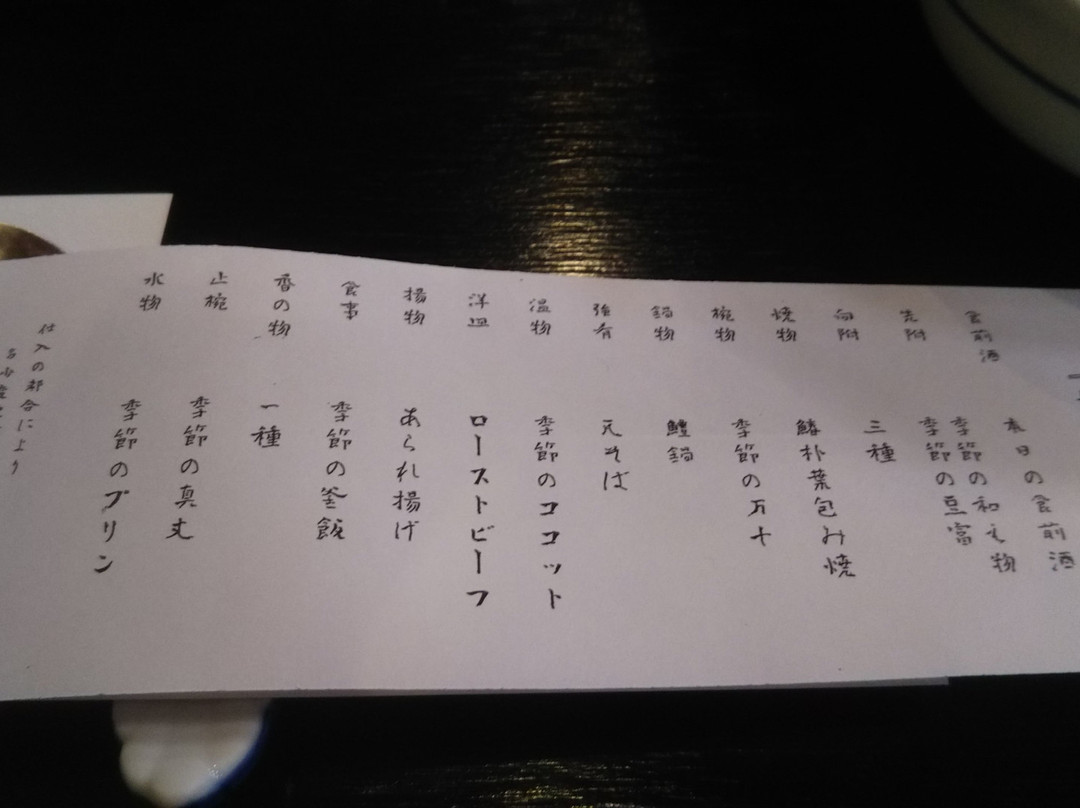 食前酒
本日の食前酒
先附
季節の和え物
季節の豆富
向附
三種
焼物
鰆朴葉包み焼
椀物
季節の万十
鍋物
鱧鍋
強肴
元そば
温物
季節のココット
洋皿
ローストビーフ
揚物
あられ揚げ
食事
季節の釜飯
香の物
一種
止椀
季節の真丈
水物
季節のプリン
仕入の都合により